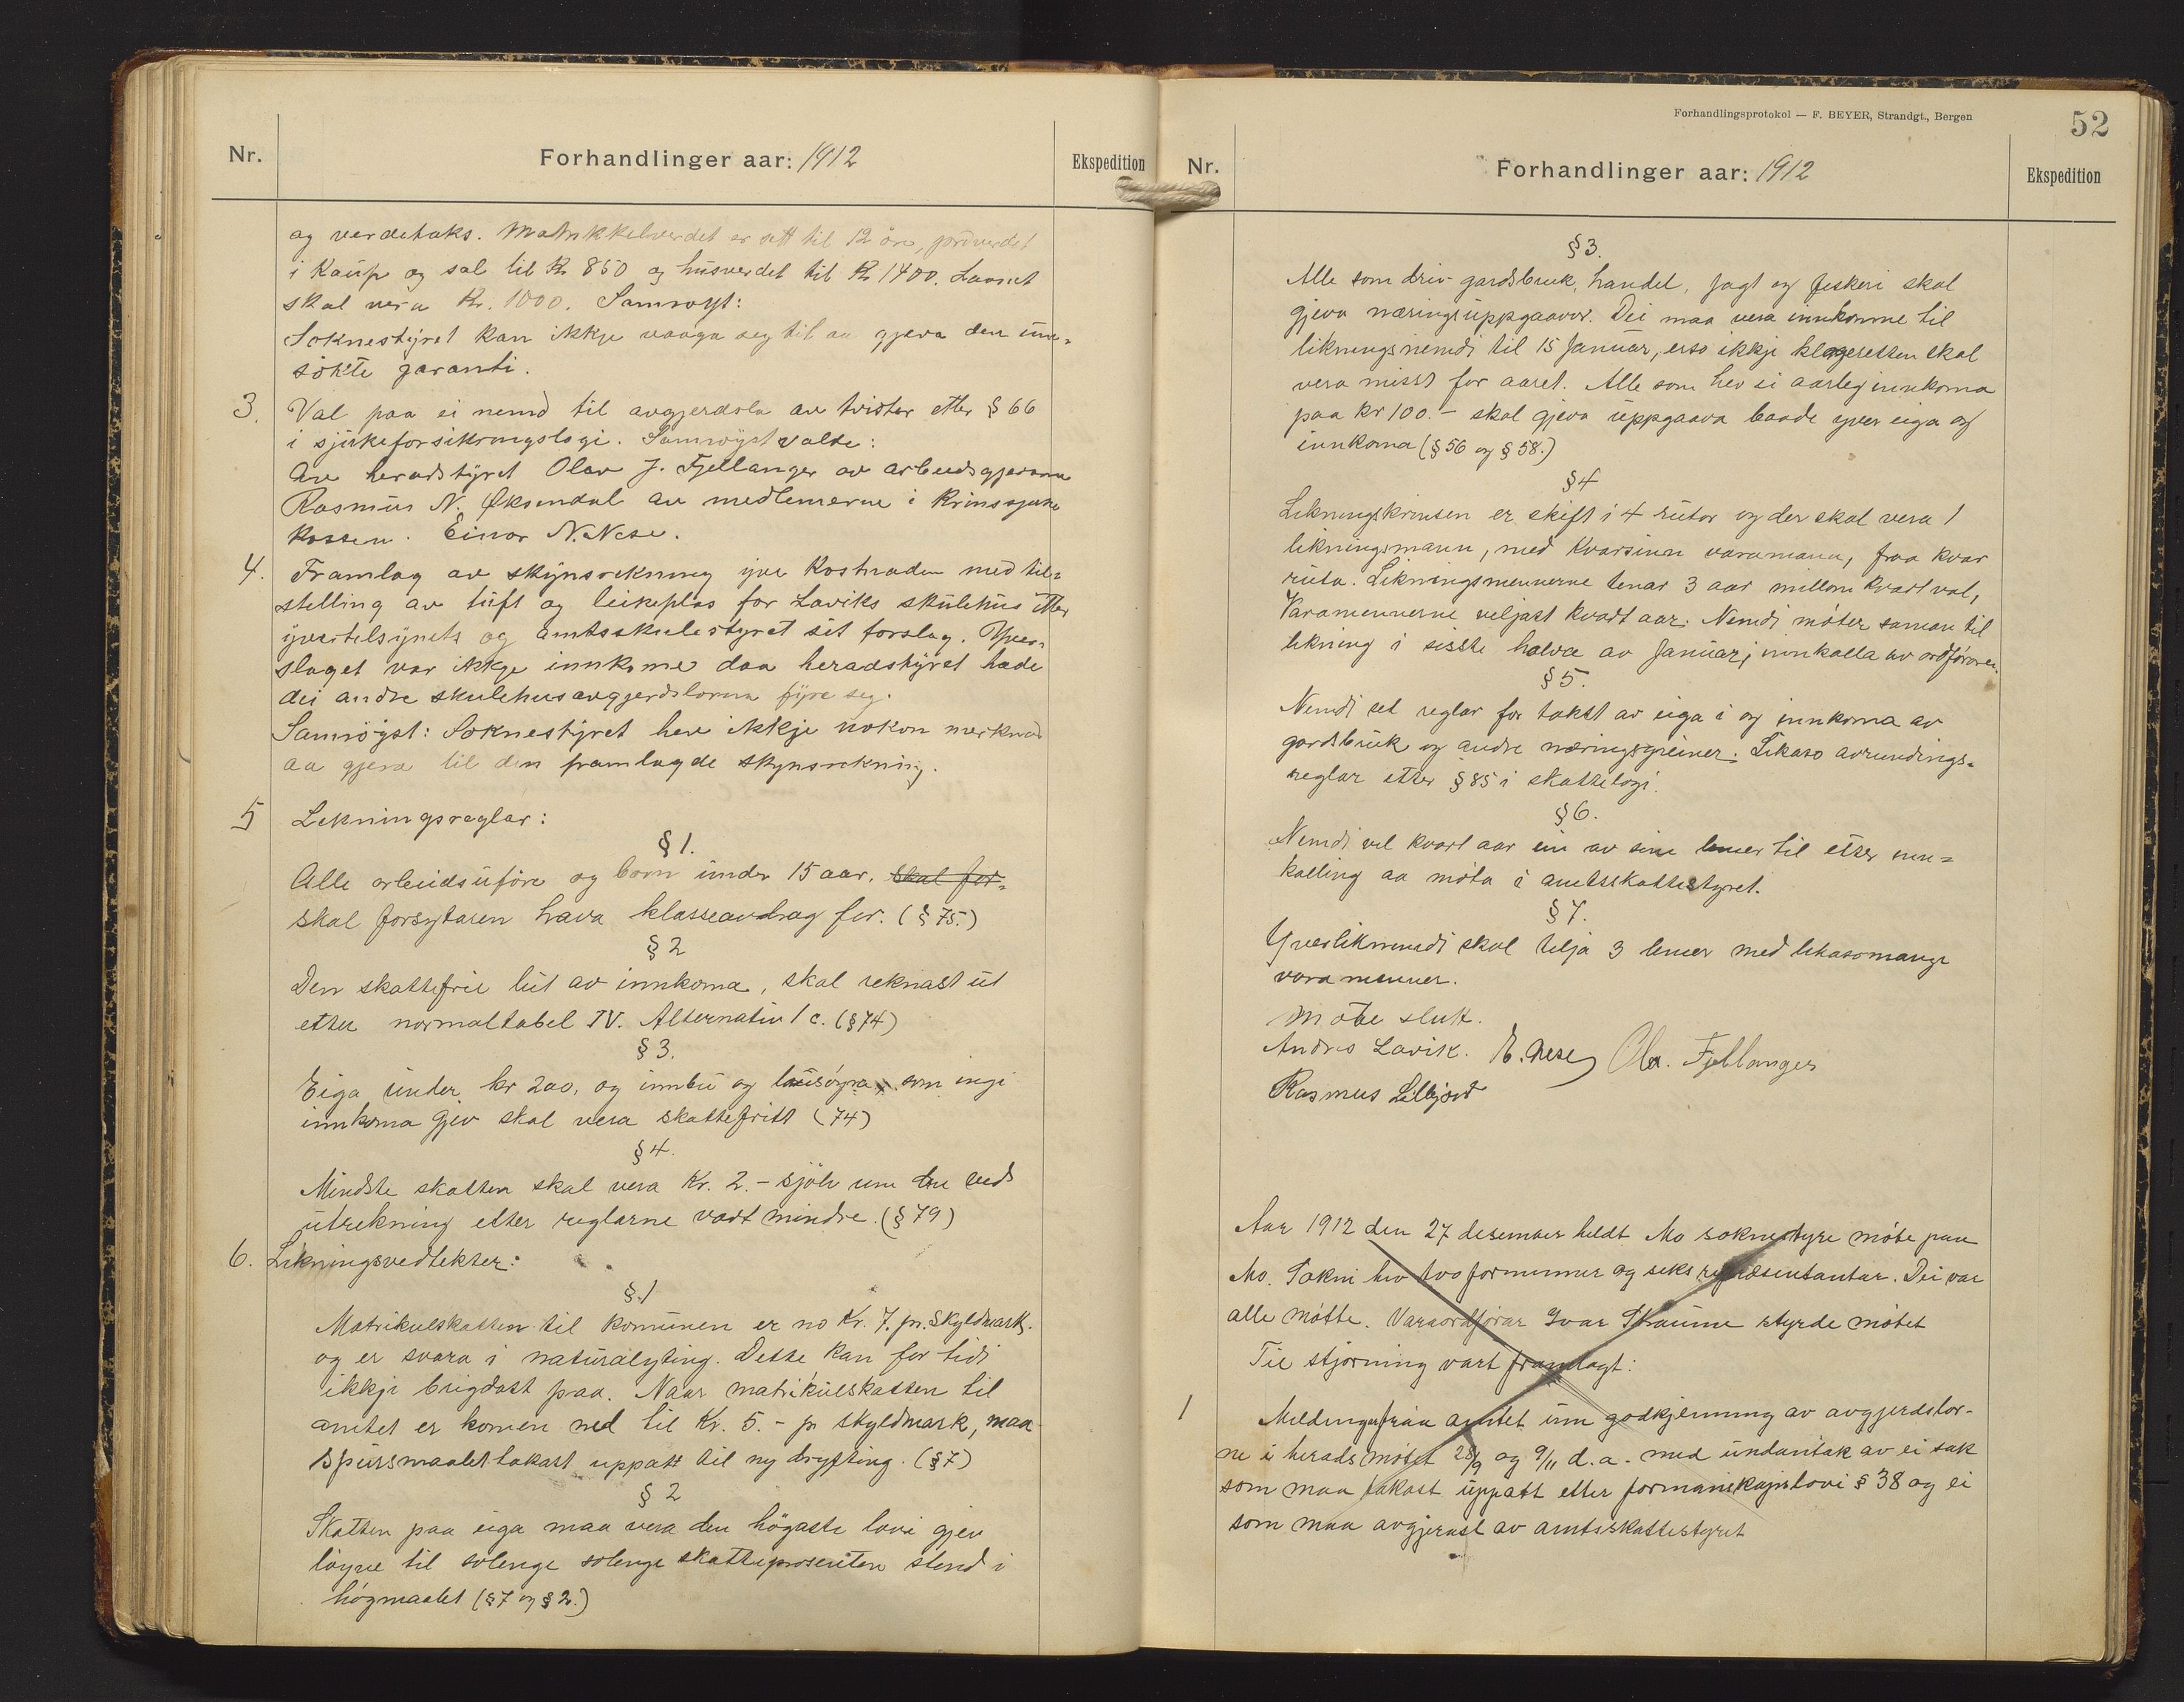 Nr.
Forhandlinger aar: 1912
Ekspedition
og verdetaks. Matrikkelverdet er sett til 12 öre, jordverdet
i Kaup og sal til Kr 850 og husverdet til Kr 1400. Laanet
skal vera Kr. 1000. Samröyst:
Soknestyret kan ikkje vaaga seg til aa gjeva den um-
sökte garanti.
3. Val paa ei nemd til avgjerdsla av tvistar etter § 66
i sjukeforsikringslogi. Samröyst valde:
Av heradstyret Olav J. Fjellanger av arbeidsgjevarane
Rasmus N. Øksendal av medlemerne i Krinssjuke
kassen. Einar N. Nese.
4. Framlag av skynsrekning yver Kostnaden med til-
stelling av tuft og leikeplas for Laviks skulehus etter
yvertilsynets og amtsskulestyret sit forslag. Yver-
slaget var ikkje innkome daa heradstyret hade
dei andre skulehusavgjerdslorna fyre seg.
Samröyst: Soknestyret hev ikkje nokon merknad
aa gjera til den framlagde skynsrekning.
5 Lekningsreglar:
§ 1.
Alle arbeidsuföre og born under 15 aar. skal for-
skal forsytaren hava klasseavdrag for. (§ 75.)
§ 2
Den skattefrie lut av innkoma, skal reknast ut
etter normaltabel IV. Alternativ 1 c. (§ 74)
§ 3.
Eiga under kr 200, og innbu og lausöyra som ingi
innkoma gjev skal vera skattefritt (74)
§ 4.
Mindste skatten skal vera Kr. 2.- sjölv um den ved
utrekning etter reglarne vart mindre. (§ 79)
6. Likningsvedtekter:
§ 1
Matrikulskatten til komunen er no Kr. 7. pr. Skyldmark.
og er svara i naturalyting. Dette kan for tidi
ikkje brigdast paa. Naar matrikulskatten til
amtet er komen ned til Kr. 5.- pr skyldmark, maa
spursmaalet takast uppatt til ny dryfting. (§ 7)
§ 2
Skatten paa eiga maa vera den högaste lovi gjev
löyve til solenge solenge skatteprosenten stend i
högmaalet (§ 7 og § 2.)
Forhandlingsprotokol — F. BEYER, Strandgt., Bergen
52
Nr.
Forhandlinger aar: 1912
Ekspedition
§ 3.
Alle som driv gardsbruk, handel, jagt og feskeri skal
gjeva næringsuppgaavor. Dei maa vera innkomne til
likningsnemdi til 15 Januar, erso ikkje klageretten skal
vera misst for aaret. Alle som hev ei aarleg innkoma
paa kr 100.- skal gjeva uppgaava baade yver eiga og
innkoma (§ 56 og § 58.)
§ 4
Likningskrinsen er skift i 4 rutor og der skal vera 1
likningsmann, med kvarsinn varamann, fraa kvar
ruta. Likningsmennerne tenar 3 aar millom kvart val,
Varamennerne veljast kvart aar. Nemdi möter saman til
likning i sisste halva av Januar, innkalla av ordföraren.
§ 5.
Nemdi set reglar for takst av eiga i og innkoma av
gardsbruk og andre næringsgreiner. Likaso avrundings-
reglar etter § 85 i skattelogi.
§ 6.
Nemdi vel kvart aar ein av sine lemer til etter inn-
kalling aa möta i amtsskattestyret.
§ 7.
Yverliknemdi skal telja 3 lemer med likasomange
varamenner.
Möte slutt.
Andres Lavik. E. Nese Ola. Fjellanger
Rasmus Lillejord
Aar 1912 den 27 desember heldt Mo soknestyre möte paa
Mo. Sokni hev tvo formenner og seks representantar. Dei var
alle mötte. Varaordförar Ivar Straume styrde mötet
Til stjorning vart framlagt:
1 Meldingar fraa amtet um godkjenning av avgjerdslor-
ne i heradsmötet 28/9 og 9/11 d.a. med undantak av ei sak
som maa takast uppatt etter formanskapslovi § 38 og ei
som maa avgjerast av amtsskattestyret